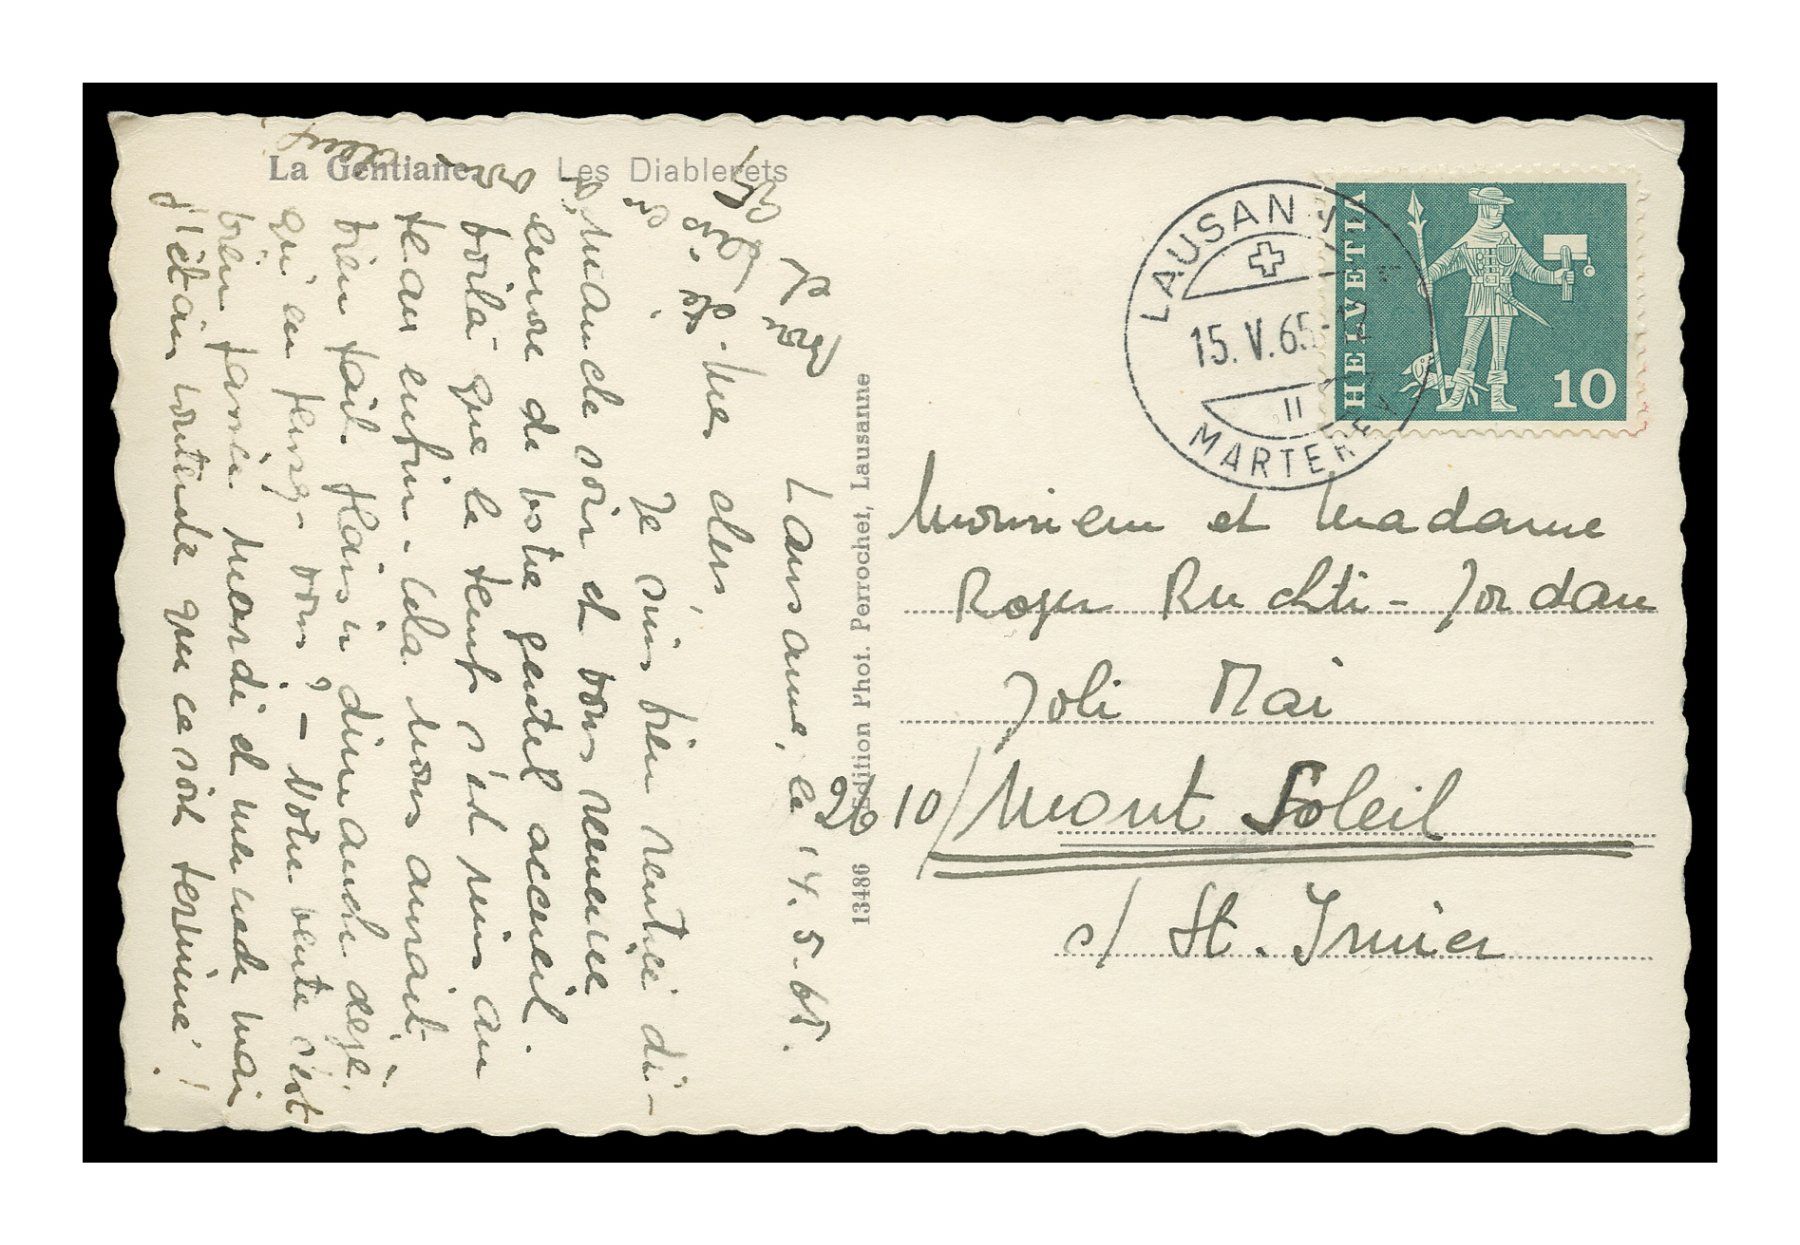 La Gentiane. Les Diablerets
Lausanne, le 14.5.65.
Mes chers,
Je suis bien rentrée di-
manche soir et vous remercie
encore de votre gentil accueil.
Voilà que le temps s'est mis au
beau enfin. Cela nous aurait
bien fait plaisir dimanche déjà.
qu'en pensez-vous? - Votre vente s'est
bien passée mardi et mercredi mais
j'étais contente que ce soit terminé!
13486 Edition Phot. Perrochet, Lausanne
LAUSANNE
15.V.65-
11
MARTEREY
HELVETIA
10
Monsieur et Madame
Roger Ruchti-Jordan
Joli Mai
2610/Mont Soleil
s/ St. Imier